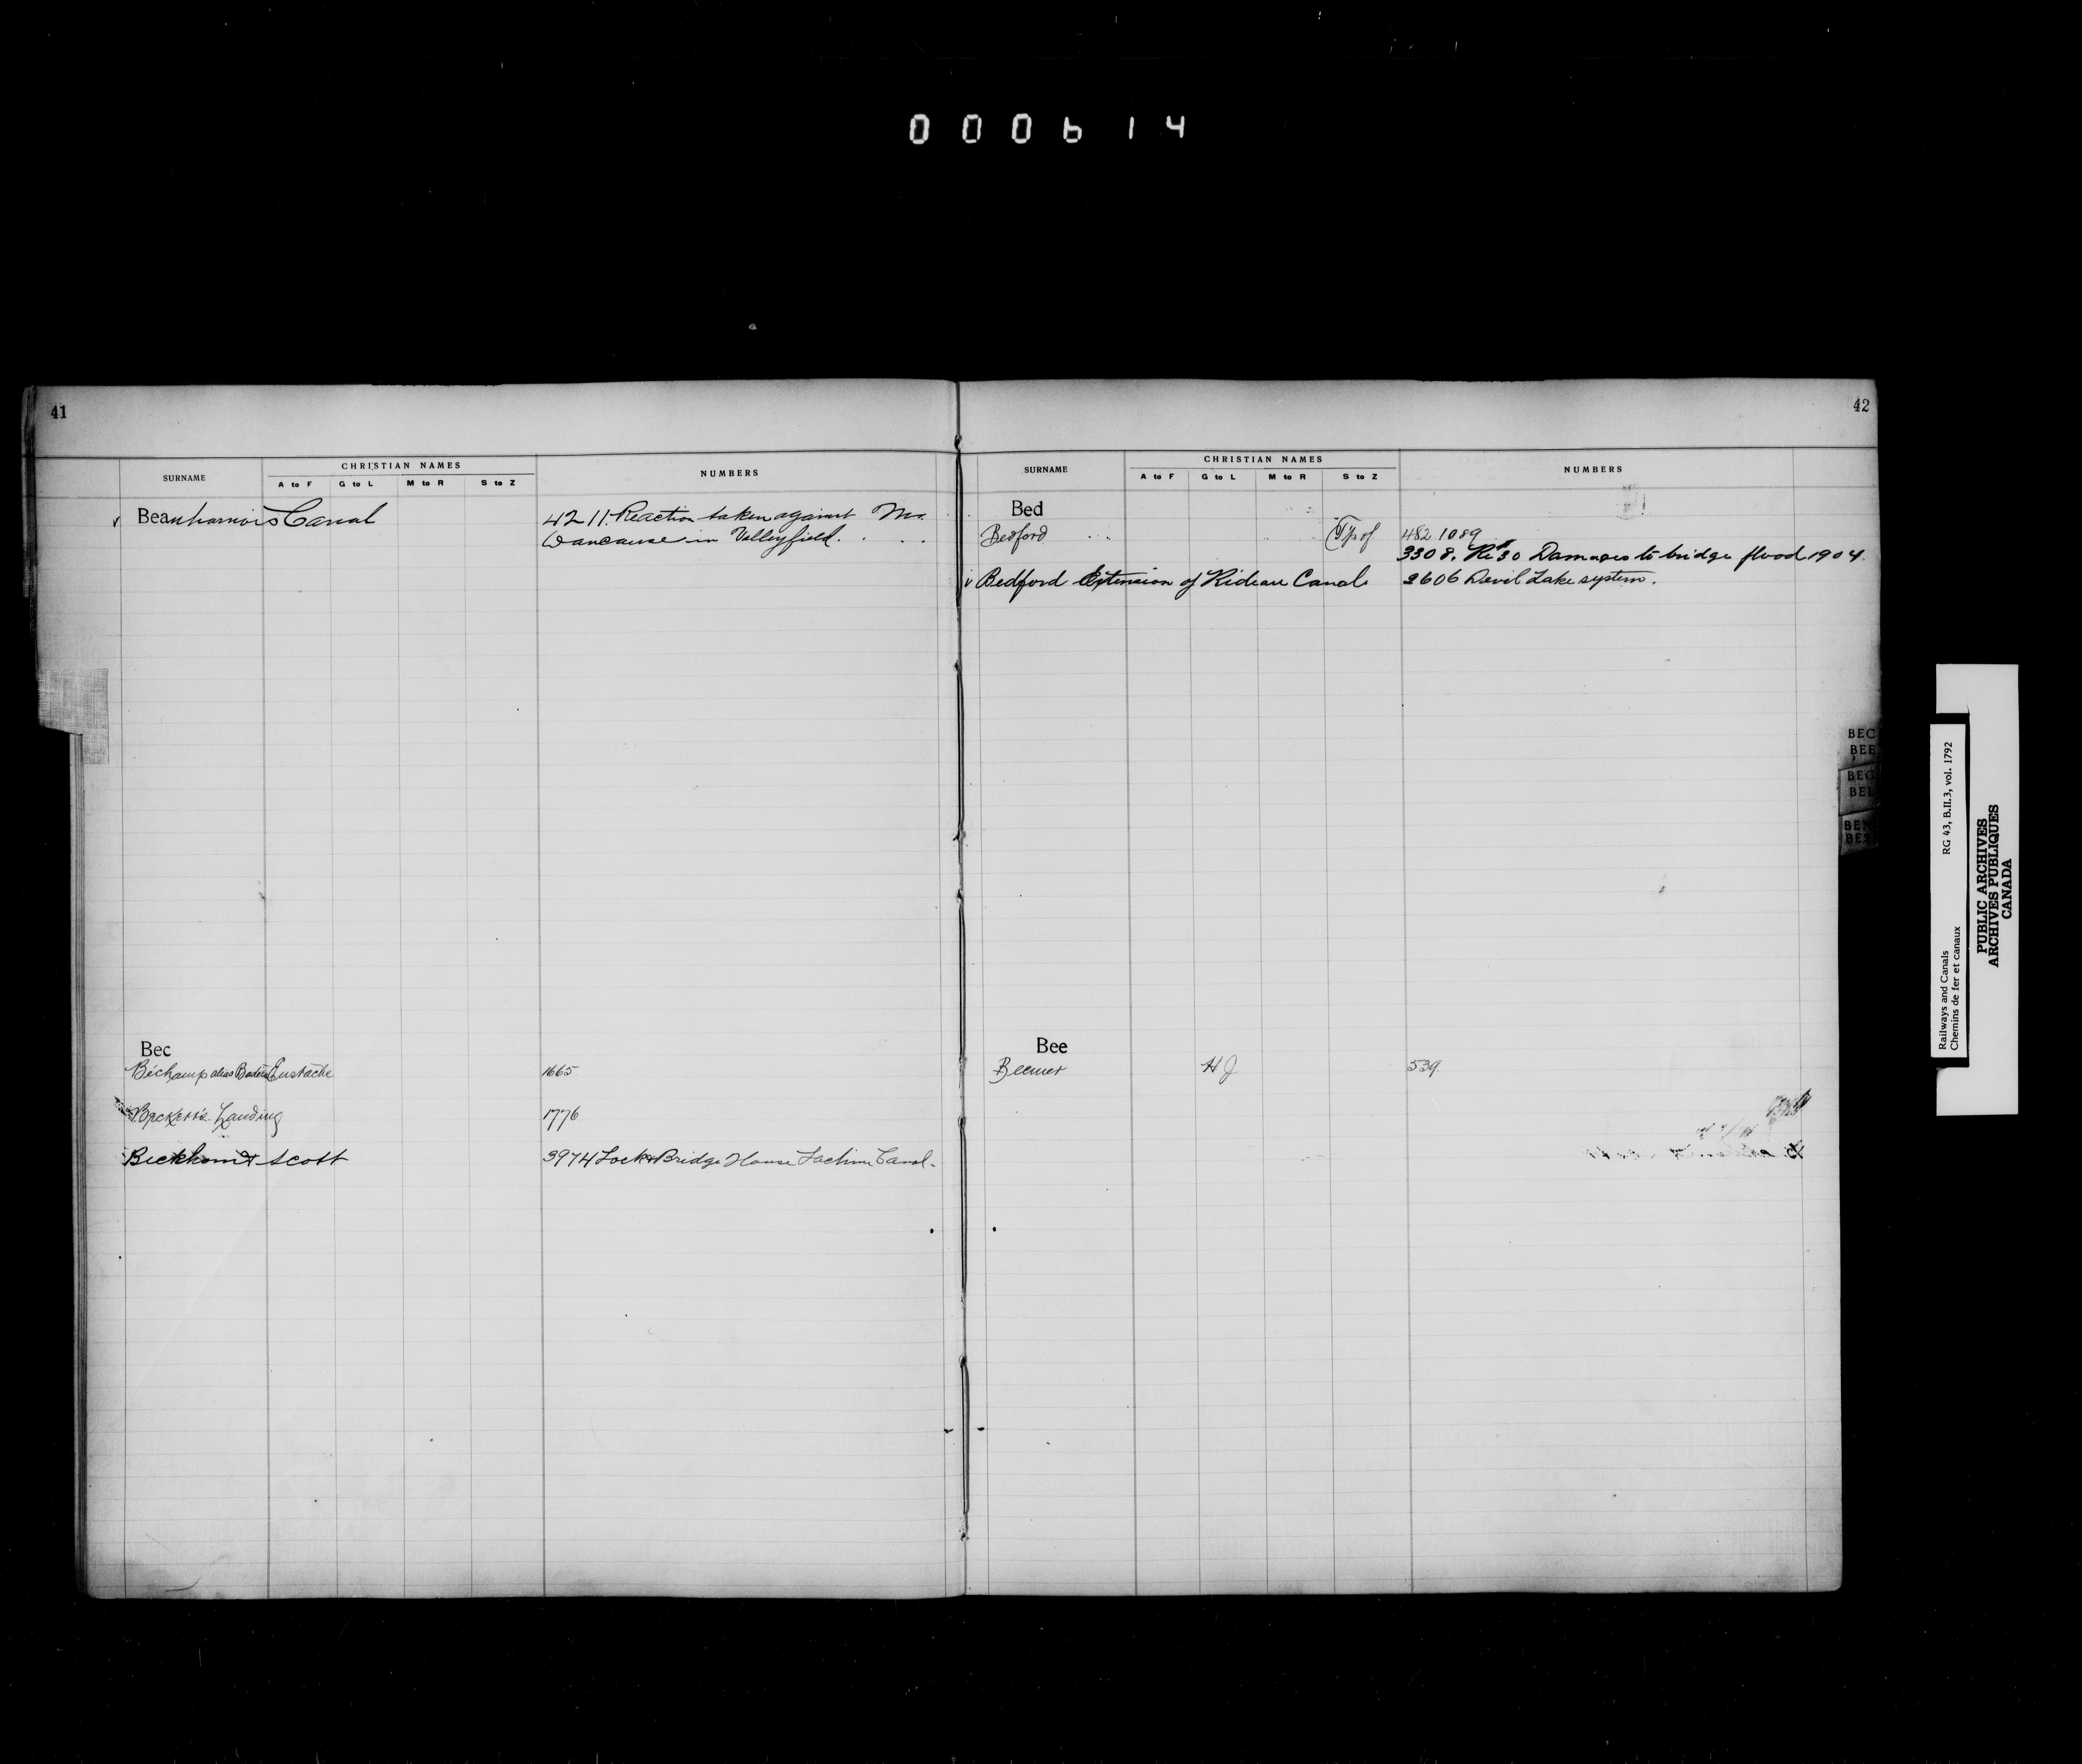 000614
41
SURNAME
CHRISTIAN NAMES
A to F G to L M to R S to Z
NUMBERS
Beauharnois Canal
4211. Re action taken against Mr.
in Valleyfield.
Bec
Béchamp alias Eustache
1665
Beckett's Landing
1776
Beckham & Scott
3974 Lock & Bridge House Lachine Canal.
42
SURNAME
CHRISTIAN NAMES
A to F G to L M to R S to Z
NUMBERS
Bed
Bedford Tp of 482 1089
3308. Re Damages to bridge flood 1904.
Bedford Extension of Rideau Canal 2606 Devil Lake system.
Bee
Beemer H J 539.
BEC
BEE
BEG
BEL
BEN
BES
Railways and Canals RG 43, B.II.3, vol. 1792
Chemins de fer et canaux
PUBLIC ARCHIVES
ARCHIVES PUBLIQUES
CANADA